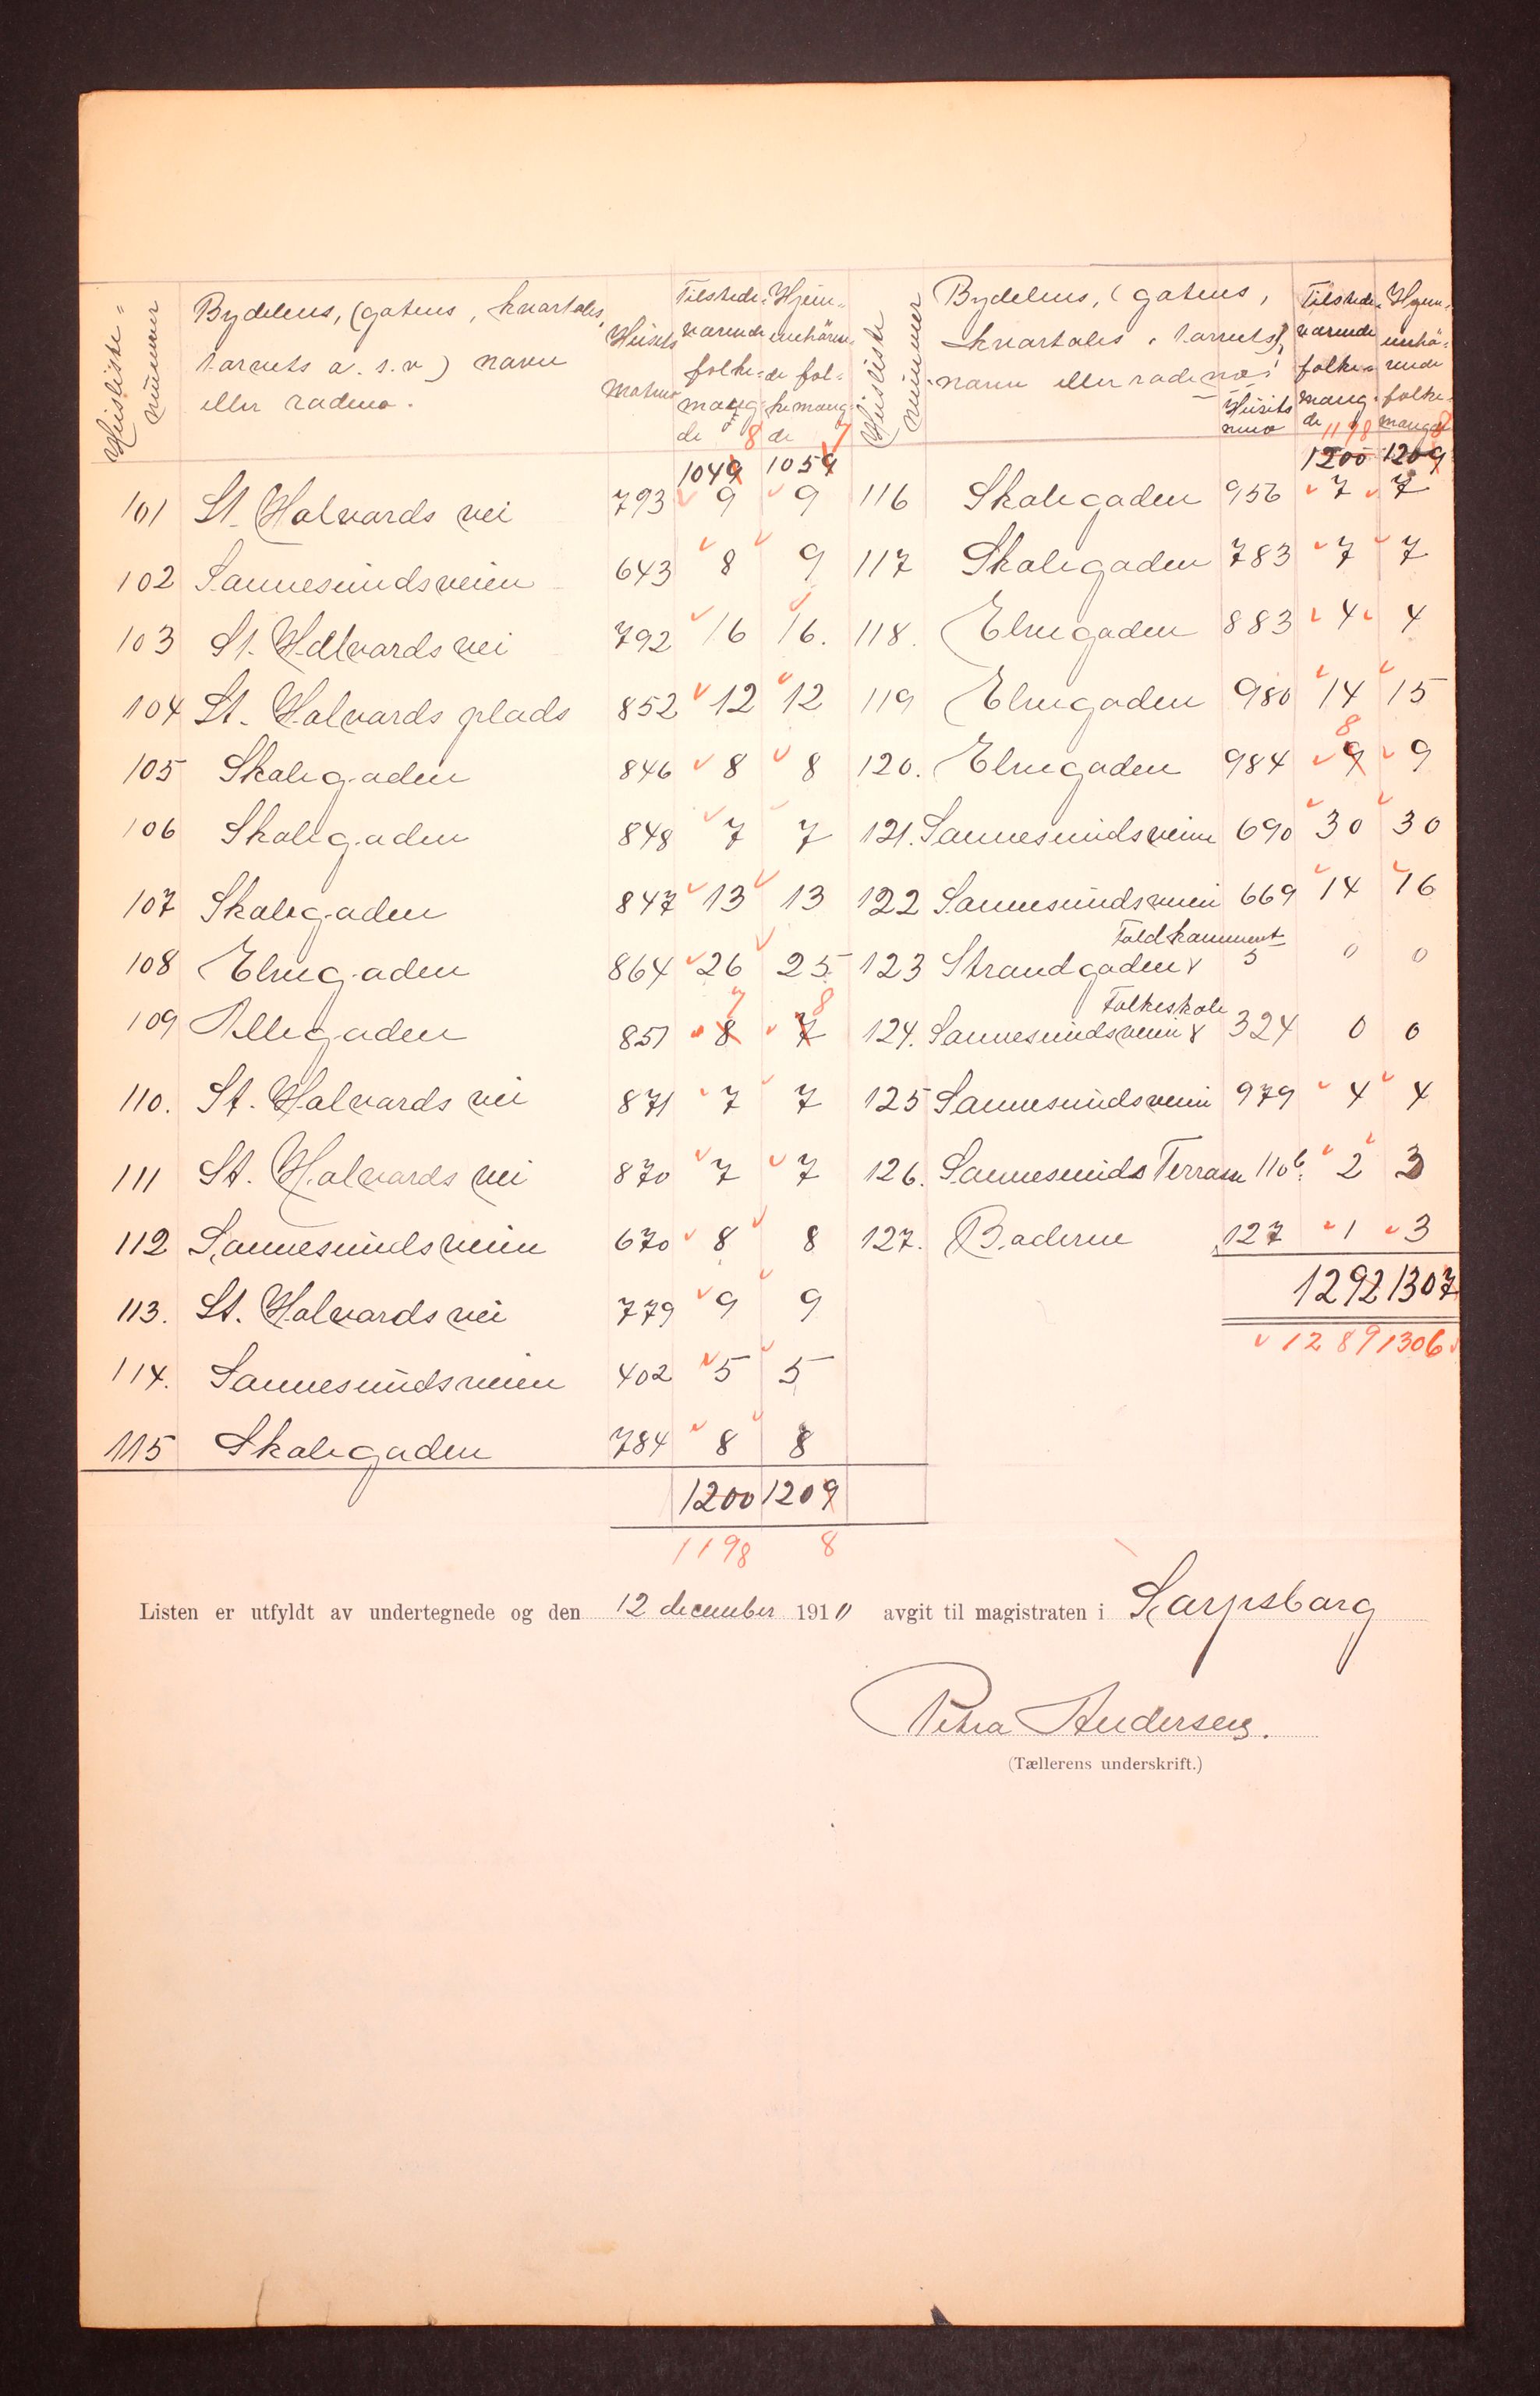 Husliste-nummer
Bydelens, (gatens, kvartalets,
torvets a. s. v) navn
eller rodeno.
Husets
Matrno
Tilstede-
værende
folke-
mæng-
de 8
Hjem-
mehøren-
de fol-
kemæng-
de 7
1049 1059
101 St. Halvards vei 793 9 9
102 Sannesundsveien 643 8 9
103 St. Hallvards vei 792 16 16.
104 St. Halvards plads 852 12 12
105 Skolegaden 846 8 8
106 Skolegaden 848 7 7
107 Skolegaden 847 13 13
108 Elvegaden 864 26 25
7 8
109 Allegaden 851 8 7
110. St. Halvards vei 871 7 7
111 St. Halvards vei 870 7 7
112 Sannesundsveien 670 8 8
113. St. Halvards vei 779 9 9
114. Sannesundsveien 402 5 5
115 Skolegaden 784 8 8
1200 1209
1198 8
Husliste nummer
Bydelens, (gatens,
kvartalets, torvets),
navn eller rodeno!
Husets
mno
Tilstede-
værende
folke-
mæng-
de 1198
Hjem-
mehø-
rende
folke-
mængde 8
1200 1209
116 Skolegaden 956 7 7
117 Skolegaden 783 7 7
118. Elvegaden 883 4 4
119 Elvegaden 980 14 15
8
120. Elvegaden 984 9 9
121. Sannesundsveien 690 30 30
122 Sannesundsveien 669 14 16
Toldkammeret
123 Strandgaden 5 0 0
Folkeskole
124. Sannesundsveien 324 0 0
125 Sannesundsveien 979 4 4
126. Sannesunds Terrasse 110b. 2 3
127. Baderne 127 1 3
1292 1307
1289 1306
Listen er utfyldt av undertegnede og den 12 december 1910 avgit til magistraten i Sarpsborg
Petra Andersen.
(Tællerens underskrift.)